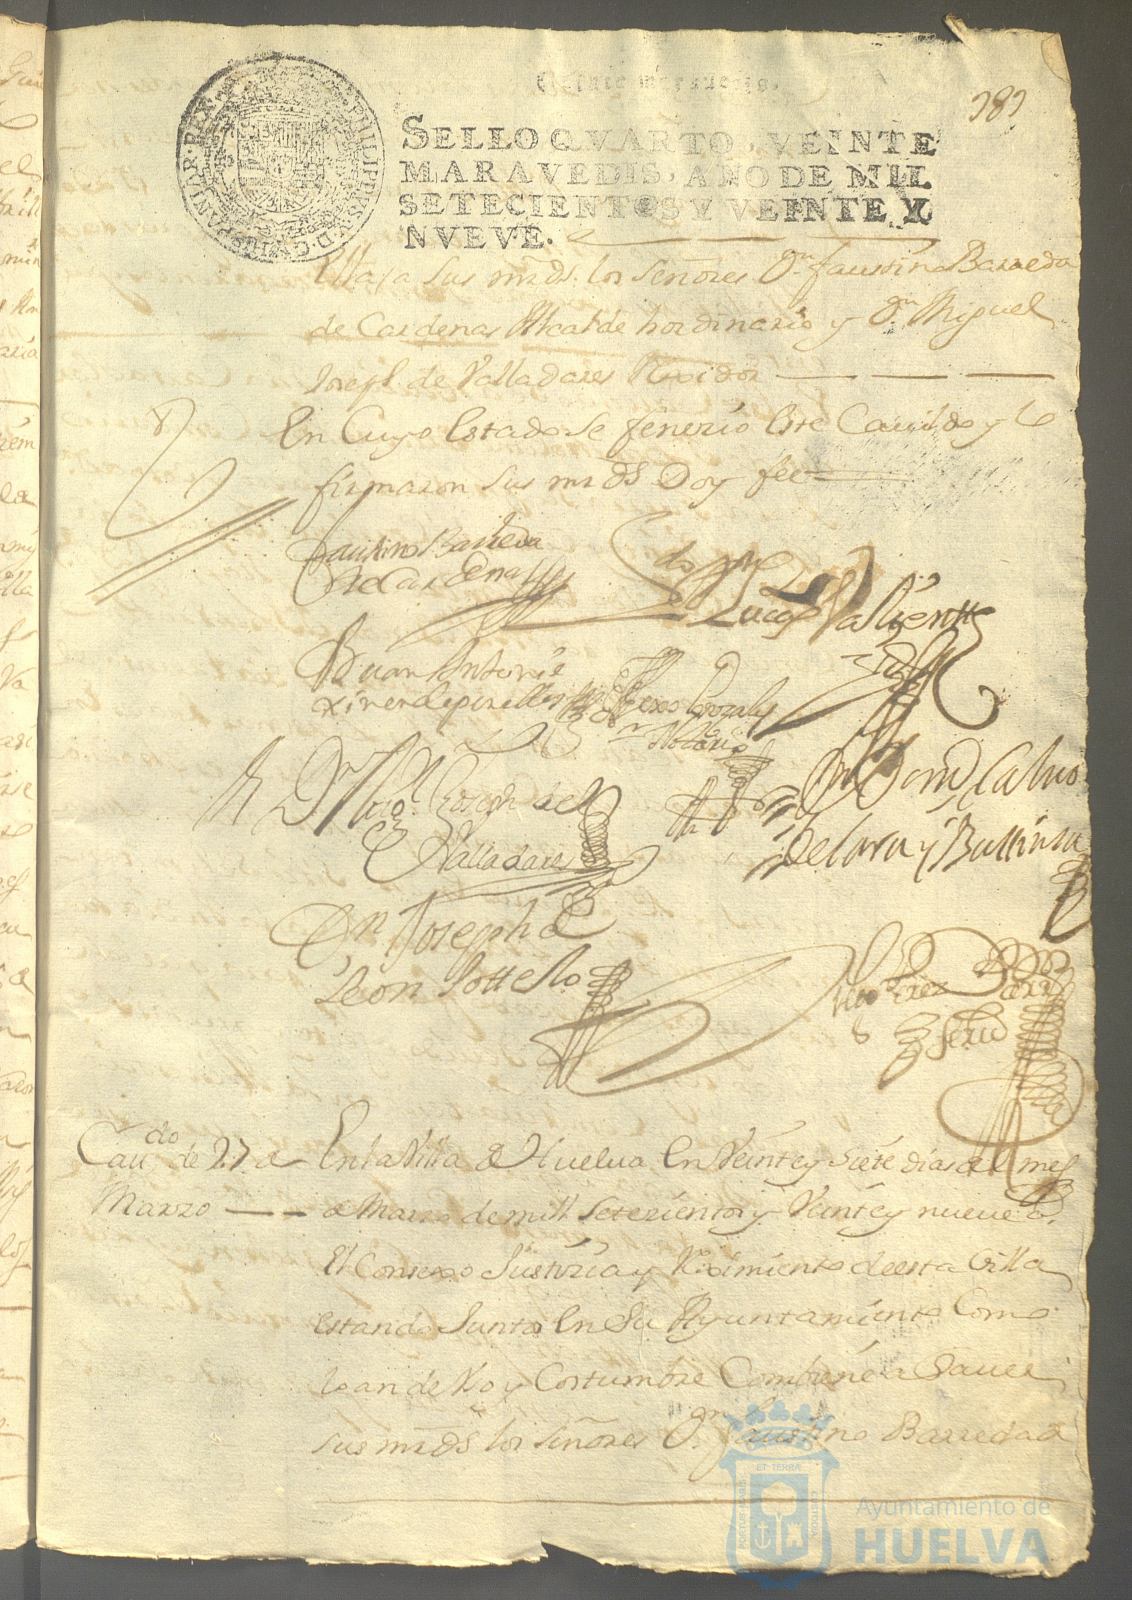 Veinte maravedis.
181
PHILIPPUS V D G HISPANIAR REX
SELLO QVARTO, VEINTE
MARAVEDIS, AÑO DE MIL
SETECIENTOS Y VEINTE Y
NVEVE.
a sus mrds. los señores Dn. faustino Barreda
de Cardenas Alcalde hordinario y Dn. Miguel
Joseph de Valladares Rexidor
En Cuyo Estado se fenerio este Cauildo y lo
firmaron sus mrds Doy fee
Faustino Barreda
de Cardenas
Lucas Valiente
Juan Antonio
Gonzales
Notario
Dn. Mig.l Joseph de
Valladares
Dn Dom.o Calvo
De lara y
Dn Joseph de
Leon Sottelo
Perez
Cau.do de 27 de
Marzo
En la Villa de Huelva En Veinte y Siete dias del mes
de Marzo de mill setezientos y Veinte y nueve a.s
El Consexo Justizia y Reximiento de esta Villa
estando Juntos En Su Ayuntamiento Como
lo an de Vso y Costumbre Combiene a Sauer
sus mrds los señores Dn. faustino Barreda de
PORTUS MARIS ET TERRAE CUSTODIA
Ayuntamiento de
HUELVA